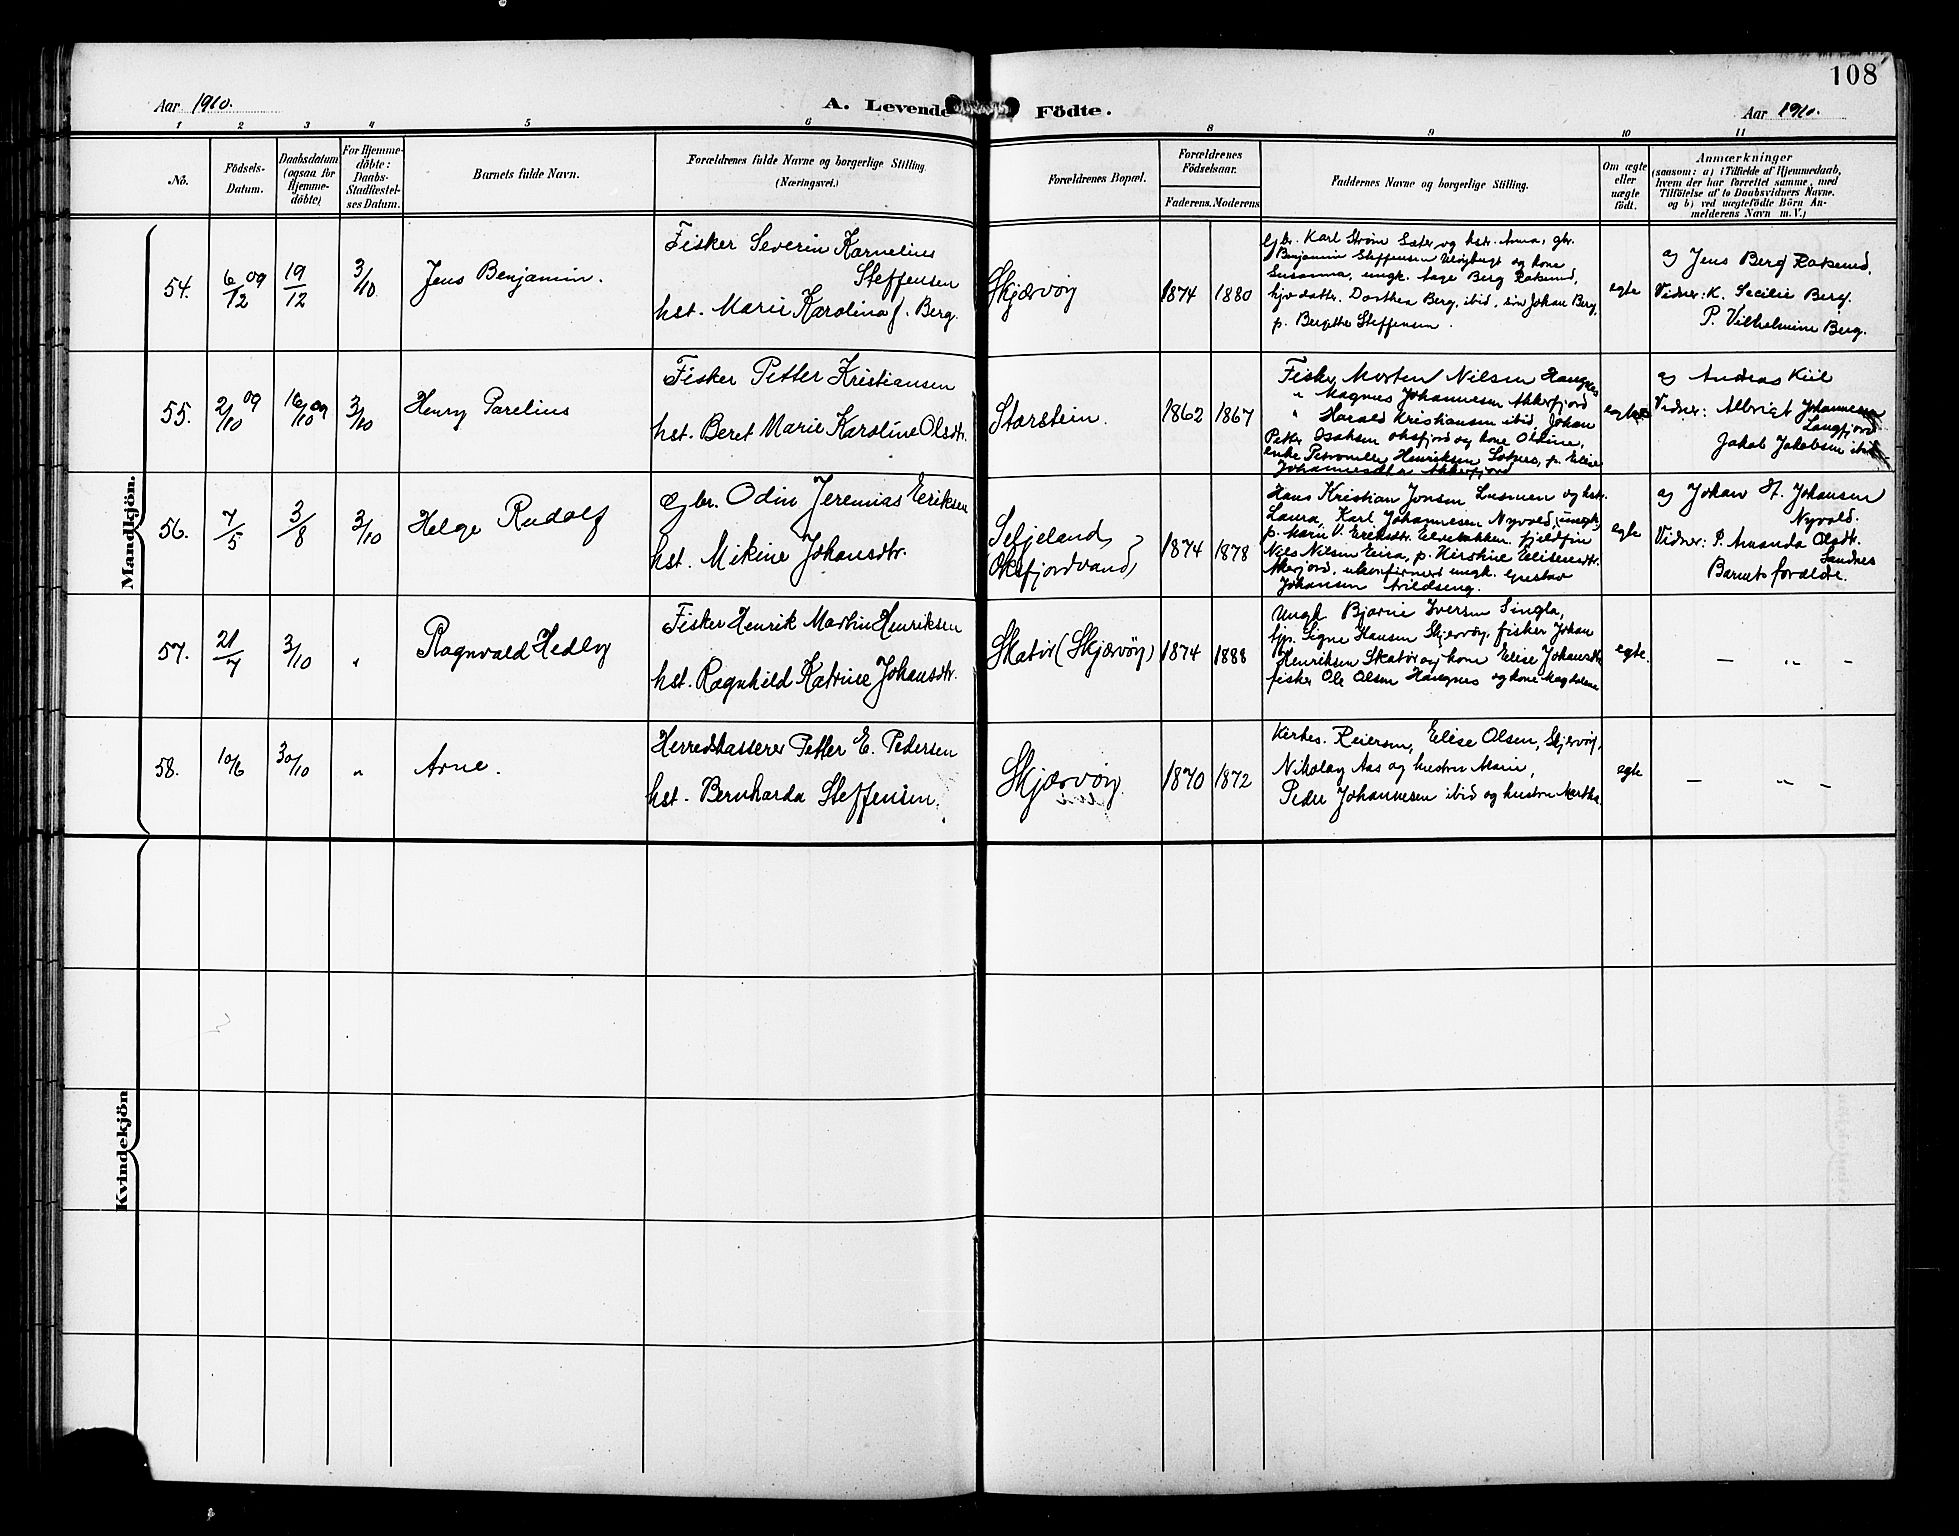 108
Aar 1910.
A. Levende Födte.
Aar 1910.
1 2 3 4 5 6 8 9 10 11
No.
Födsels-
Datum.
Daabsdatum
(ogsaa for
Hjemme-
döbte)
For Hjemme-
döbte:
Daabs-
Stadfæstel-
ses Datum.
Barnets fulde Navn.
Forældrenes fulde Navne og borgerlige Stilling.
(Næringsvei.)
Forældrenes Bopæl.
Forældrenes
Födselsaar.
Faderens. Moderens.
Faddernes Navne og borgerlige Stilling.
Om ægte
eller
uægte
födt.
Anmærkninger
(saasom: a) i Tilfælde af Hjemmedaab,
hvem der har forrettet samme, med
Tilföielse af to Daabsvidners Navne.
og b) ved uægtefödte Börn An-
melderens Navn m. V.)
Mandkjön.
54. 6/12 09 19/12 3/10 Jens Benjamin.
Fisker Severin Kornelius
Steffensen
hst. Marie Karolina f. Berg.
Skjærvöy
1874 1880
gbr. Karl Ström Sæter og hstr. Anna, gbr.
Benjamin Steffensen og kone
Susanna, ungk. Aage Berg Raksund,
Dorthea Berg, ibid, Johan Berg,
p. Bergithe Steffensen.
egte
a) Jens Berg Raksund.
Vidner: K. Secilie Berg.
P. Vilhelmine Berg.
55. 2/10 09 16/10 09 3/10 Henry Parelius
Fisker Petter Kristiansen
hst. Beret Marie Karoline Olsdtr.
Storstein.
1862 1867
Fisker Morten Nilsen Haugnes
" Magnus Johannesen Akkerfjord
" Harald Kristiansen ibid, Johan
Petter Isaksen Oksfjord og kone Oline,
enke Petronelle Henriksen p. Elise
Johannesdtr Akkerfjord
egte
a) Andreas Kiil
Vidner: Albrigt Johannesen
Langfjord
Jakob Jakobsen ibid.
56. 7/5 3/8 3/10 Helge Rudolf
Gbr. Odin Jeremias Eriksen
hst. Mikine Johansdtr.
Seljeland,
Oksfjordvand,
1874 1878
Hans Kristian Jonsen og hstr.
Laura, Karl Johannesen Nyvold, (ungk),
p. Marie V. Eriksdtr. Elvebakken, fjeldfin
Nils Nilsen p. Kirstine
ukonfirmert ungk. Gustav
Johansen
egte
a) Johan H. Johansen
Nyvold.
Vidner: P. Amanda Olsdtr.
Sandnes
Barnets forældre.
57. 21/7 3/10 " Ragnvald Hedly
Fisker Henrik Martin Henriksen
hst. Ragnhild Katrine Johansdtr.
Skatör (Skjærvöy)
1874 1888
Ungk. Bjarne Iversen Singla,
tjp. Signe Hansen Skjervöy, fisker Johan
Henriksen Skatör og kone Elise Johansdtr
fisker Ole Olsen Haugnes og kone Magdalene
egte.
— " —
58. 10/6 30/10 " Arne.
Herredskasserer Petter E. Pedersen
hst. Bernharda Steffensen.
Skjærvöy.
1870 1872
Kirkes. Reiersen, Elise Olsen, Skjervöy,
Nikolay Aas og hustru Marie,
Peder Johannesen ibid og hustru Martha.
egte
— " —
Kvindekjön